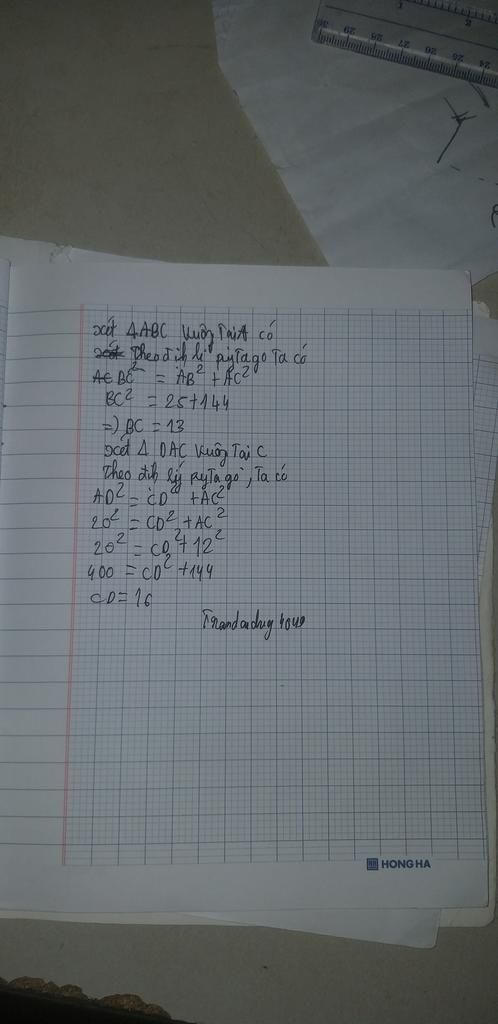 xét ΔABC vuông tại A có
theo địh lí pytago ta có
BC² = AB² + AC²
BC² = 25+144
=) BC = 13
xét Δ DAC vuông tại C
theo địh lý pytago, ta có
AD² = CD² + AC²
20² = CD² + AC²
20² = CD² + 12²
400 = CD² + 144
CD = 16
HONG HA
30 29 28 27 26 25 24